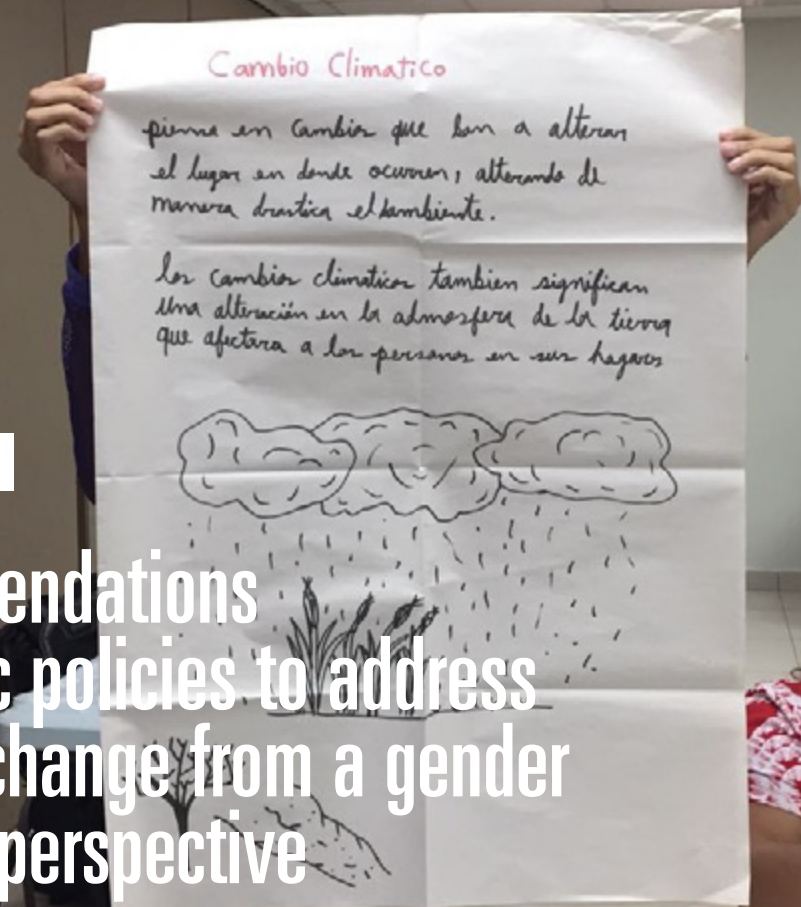 Cambio Climatico
piensa en Cambios que ban a alterar
el lugar en donde ocurren, alterando de
manera drastica el ambiente.
los cambios climaticos tambien significan
una alteración en la admosfera de la tierra
que afectara a las personas en sus hogares
endations
c policies to address
change from a gender
perspective